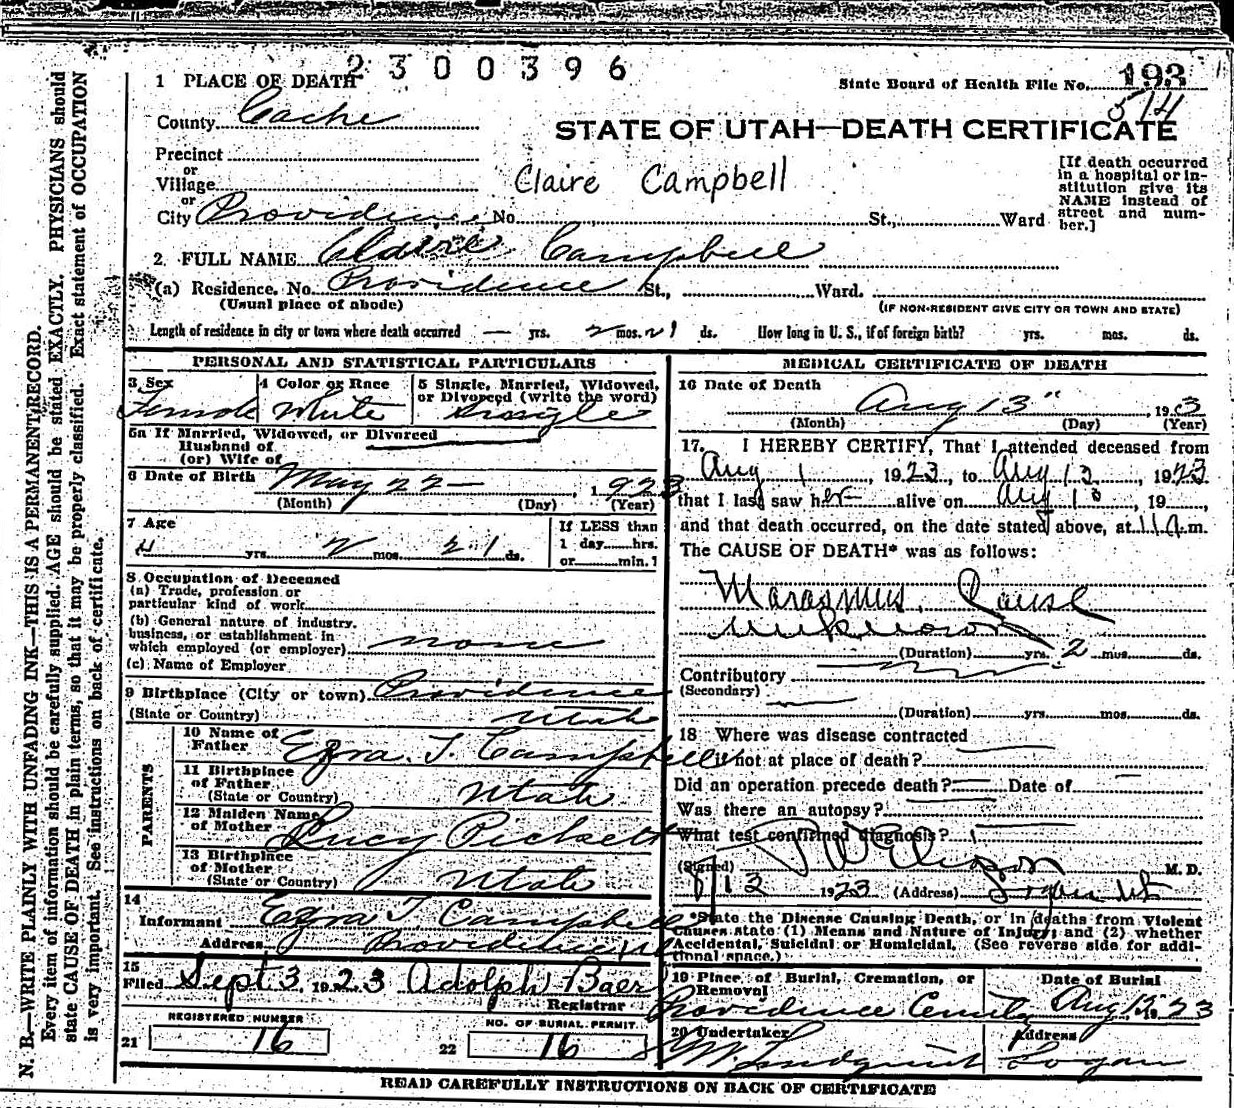 2300396
1 PLACE OF DEATH
State Board of Health File No. 193
514
County Cache
STATE OF UTAH—DEATH CERTIFICATE
Precinct
or
Village
or
City Providence No. St., Ward
Claire Campbell
[If death occurred
in a hospital or in-
stitution give its
NAME instead of
street and num-
ber.]
2 FULL NAME Claire Campbell
(a) Residence. No. Providence St., Ward.
(Usual place of abode)
(IF NON-RESIDENT GIVE CITY OR TOWN AND STATE)
Length of residence in city or town where death occurred — yrs. 2 mos. 21 ds. How long in U. S., if of foreign birth? yrs. mos. ds.
PERSONAL AND STATISTICAL PARTICULARS
3 Sex
Female
4 Color or Race
White
5 Single, Married, Widowed,
or Divorced (write the word)
Single
5a If Married, Widowed, or Divorced
Husband of
(or) Wife of
6 Date of Birth May 22 — , 1923
(Month) (Day) (Year)
7 Age
yrs. 2 mos. 21 ds.
If LESS than
1 day hrs.
or min.
8 Occupation of Deceased
(a) Trade, profession or
particular kind of work
(b) General nature of industry,
business, or establishment in
which employed (or employer) none
(c) Name of Employer
9 Birthplace (City or town) Providence
(State or Country) Utah
PARENTS
10 Name of
Father Ezra. T. Campbell
11 Birthplace
of Father
(State or Country) Utah
12 Maiden Name
of Mother Lucy Rickett
13 Birthplace
of Mother
(State or Country) Utah
14
Informant Ezra T Campbell
Address Providence Ut
15
Filed Sept 3 1923 Adolph Baer
Registrar
REGISTERED NUMBER
21 16
NO. OF BURIAL PERMIT
22 16
MEDICAL CERTIFICATE OF DEATH
16 Date of Death
Aug 13" , 1923
(Month) (Day) (Year)
17. I HEREBY CERTIFY, That I attended deceased from
Aug 1 , 1923, to Aug 13 , 1923
that I last saw her alive on Aug 13 , 19
and that death occurred, on the date stated above, at 11 a.m.
The CAUSE OF DEATH* was as follows:
Marasmus. Cause
unknown
(Duration) yrs. 2 mos. ds.
Contributory
(Secondary)
(Duration) yrs. mos. ds.
18 Where was disease contracted
if not at place of death?
Did an operation precede death? Date of
Was there an autopsy?
What test confirmed diagnosis?
(Signed) M. D.
8/13 1923 (Address) Logan Ut
*State the Disease Causing Death, or in deaths from Violent
Causes state (1) Means and Nature of Injury; and (2) whether
Accidental, Suicidal or Homicidal. (See reverse side for addi-
tional space.)
19 Place of Burial, Cremation, or
Removal
Providence Cemetery
Date of Burial
Aug 15 1923
20 Undertaker
Lindquist
Address
Logan
READ CAREFULLY INSTRUCTIONS ON BACK OF CERTIFICATE
N. B.—WRITE PLAINLY WITH UNFADING INK—THIS IS A PERMANENT RECORD.
Every item of information should be carefully supplied. AGE should be stated EXACTLY. PHYSICIANS should
state CAUSE OF DEATH in plain terms, so that it may be properly classified. Exact statement of OCCUPATION
is very important. See instructions on back of certificate.